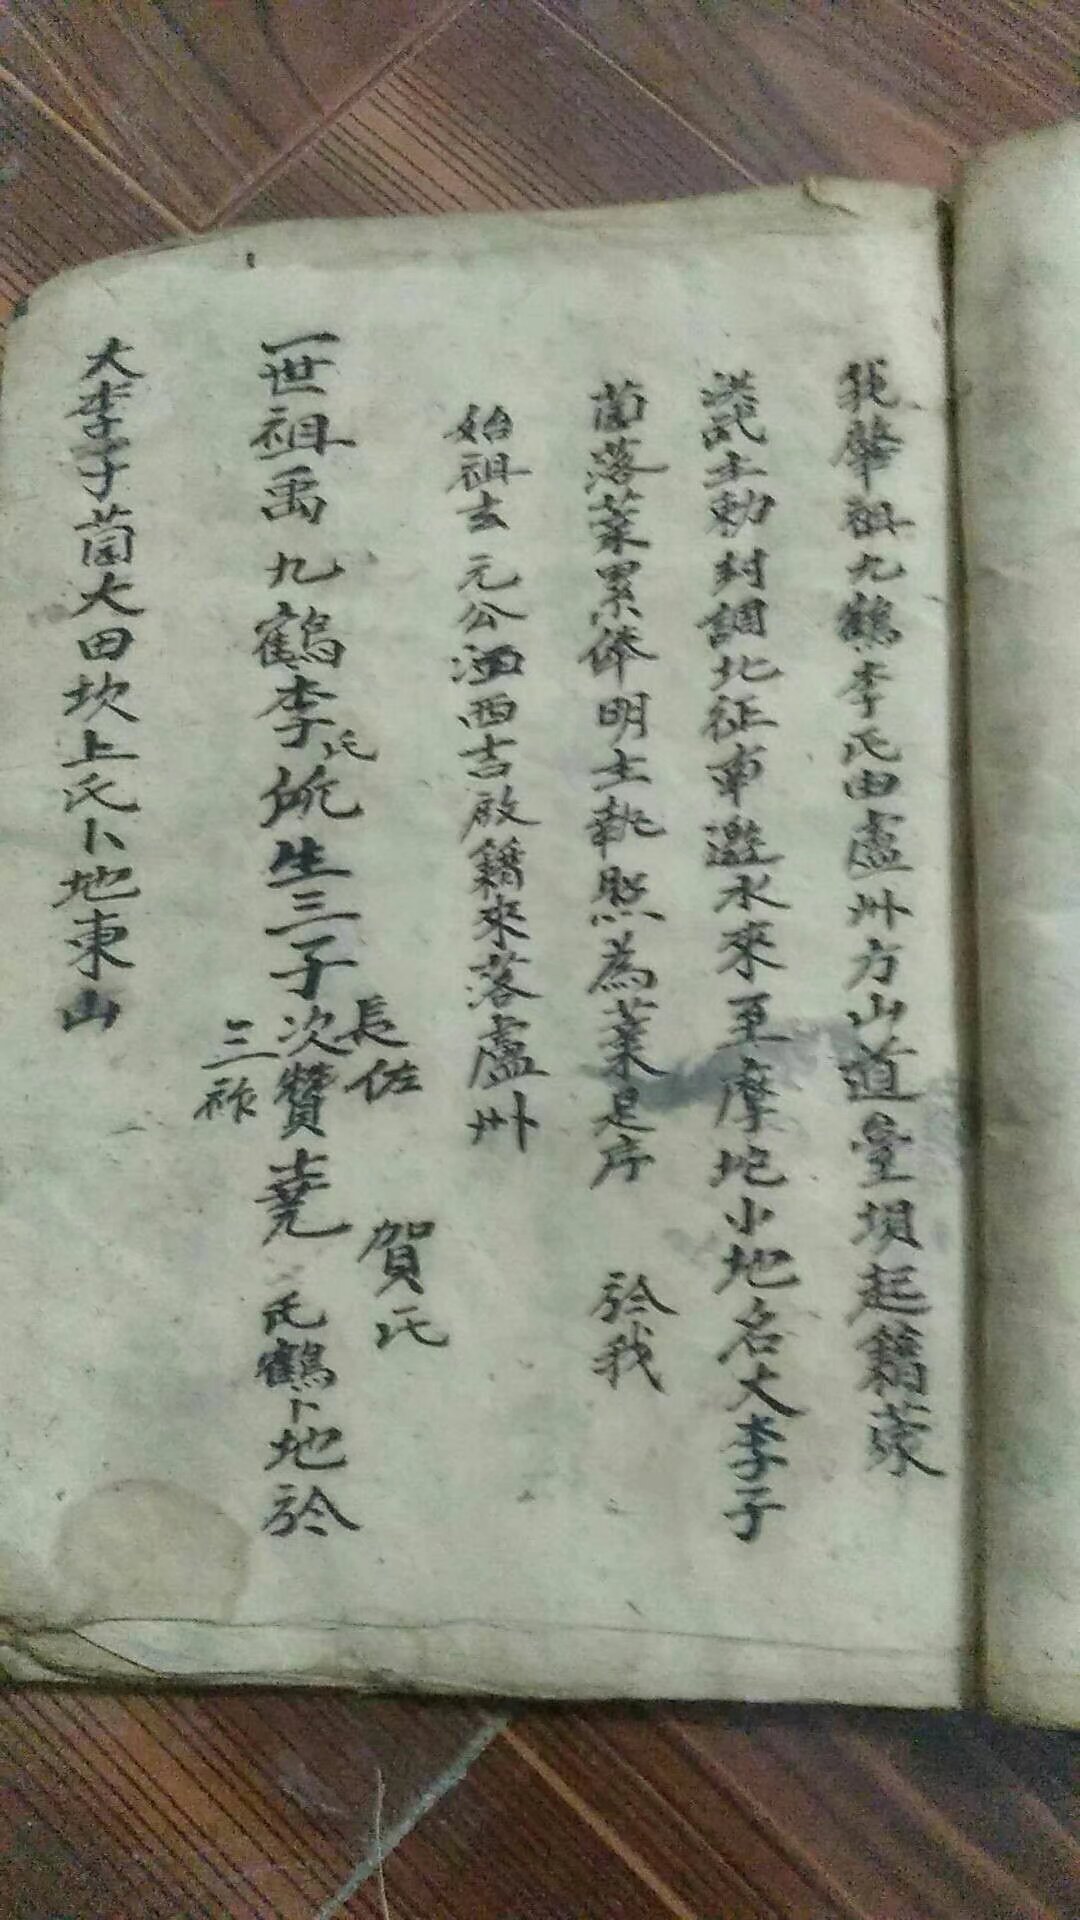 我肇祖九鶴李氏由盧州方山道堂壩起籍蒙
洪武主勅封調北征車邀水來至摩坭小地名大李子
茵落業累俸明主執照為業是序 於我
始祖去元公洒西吉啟籍來落盧州
一世祖禹九鶴李氏生三子長佐次贊堯三祚賀氏 氏鶴卜地於
大李子茵大田坎上氏卜地東山